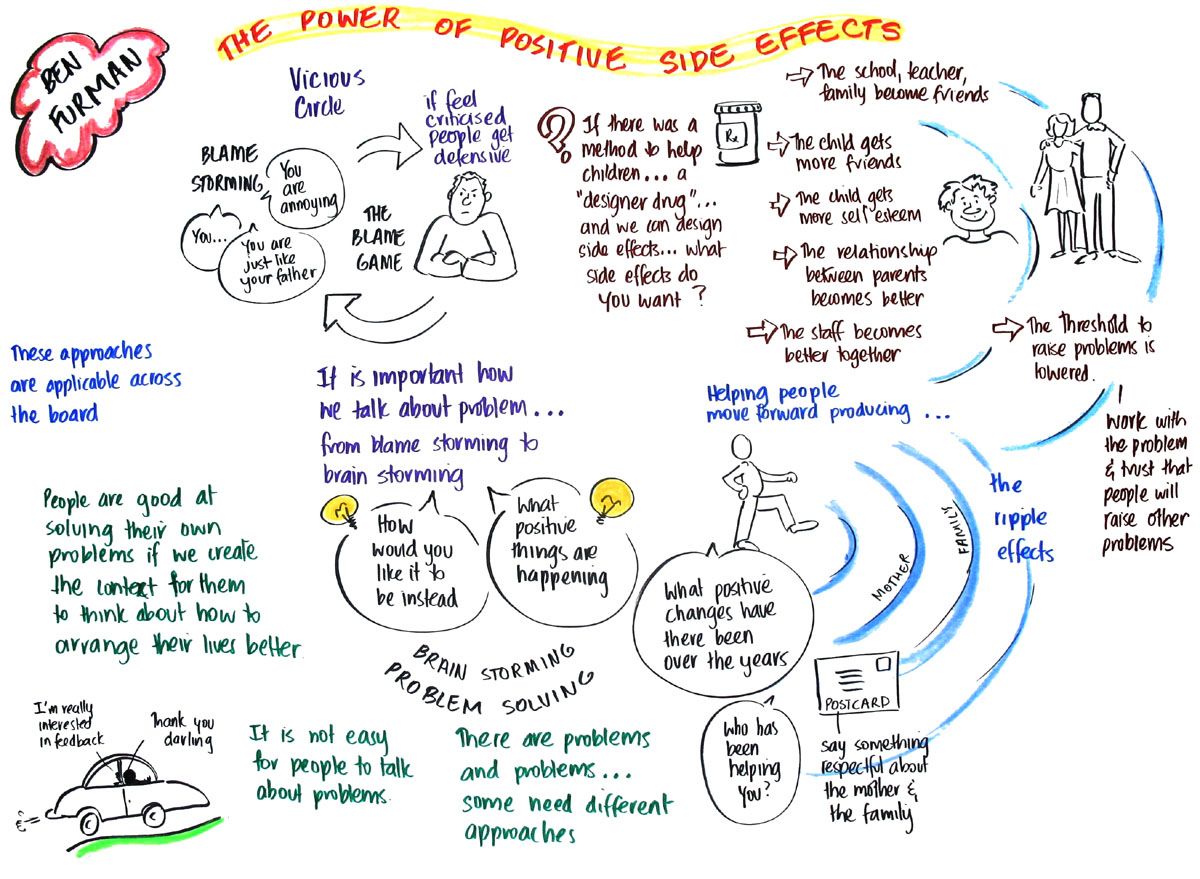 THE POWER OF POSITIVE SIDE EFFECTS
BEN
FURMAN
Vicious
Circle
BLAME
STORMING
You
are
annoying
You...
You are
just like
your father
if feel
criticised
people get
defensive
THE
BLAME
GAME
?
If there was a
method to help
children... a
"designer drug"...
and we can design
side effects... what
side effects do
you want?
Rx
The school, teacher,
family become friends
The child gets
more friends
The child gets
more self esteem
The relationship
between parents
becomes better
The staff becomes
better together
The Threshold to
raise problems is
lowered.
work with
the problem
& trust that
people will
raise other
problems
These approaches
are applicable across
the board
It is important how
we talk about problem...
from blame storming to
brain storming
How
would you
like it to
be instead
What
positive
things are
happening
BRAIN STORMING
PROBLEM SOLVING
Helping people
move forward producing ...
the
ripple
effects
MOTHER
FAMILY
What positive
changes have
there been
over the years
Who has
been
helping
you?
POSTCARD
say something
respectful about
the mother &
the family
People are good at
solving their own
problems if we create
the context for them
to think about how to
arrange their lives better.
I'm really
interested
in feedback
Thank you
darling
It is not easy
for people to talk
about problems.
There are problems
and problems...
some need different
approaches